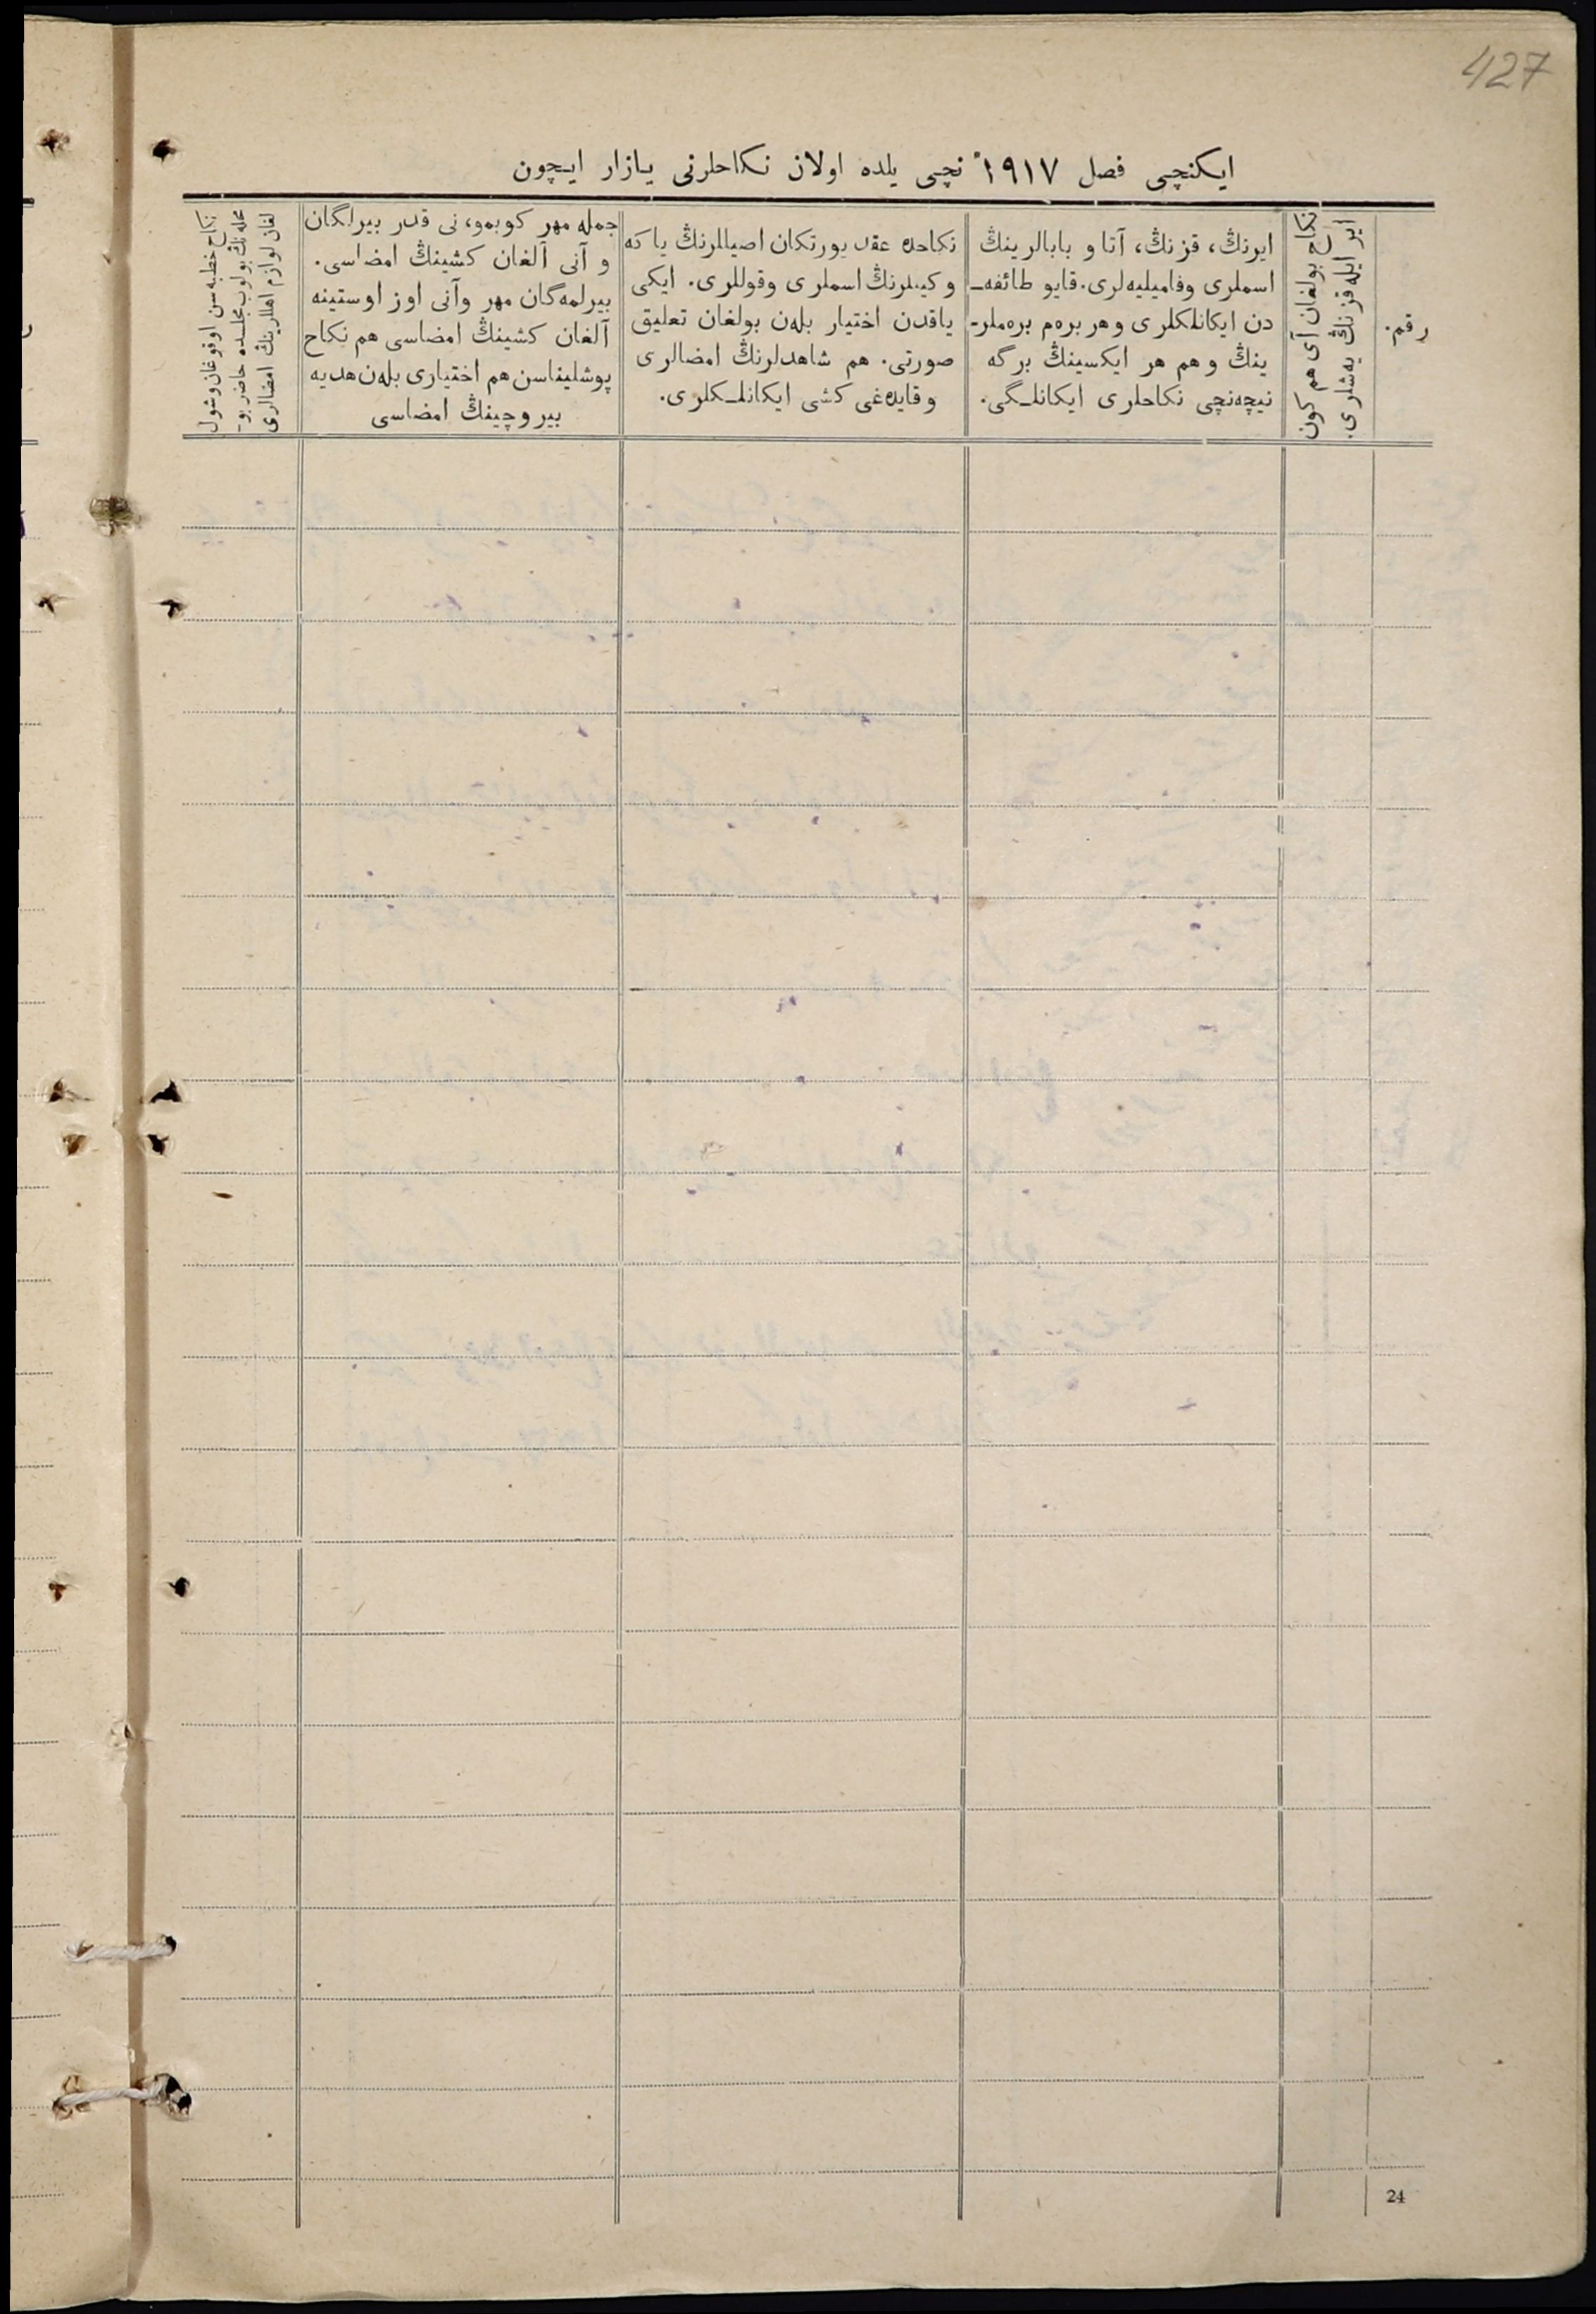 427
ایکنچی فصل ١٩١٧ نچی یلده اولان نکاحلرنی یازار ایچون
رقم.
نکاح بولغان آی هم کون
ایر ایله قزنڭ یەشلری.
ایرنڭ، قزنڭ، آتا و بابالرینڭ
اسملری وفامیلیەلری. قایو طائفەـ
دن ایکانلکلری وهر برەم برەملرـ
ینڭ وهم هر ایکسینڭ برگه
نیچەنچی نکاحلری ایکانلـگی.
نکاحده عقد یورتکان اصیللرنڭ یا که
وکیللرنڭ اسملری وقوللری. ایکی
یاقدن اختیار بلەن بولغان تعلیق
صورتی. هم شاهدلرنڭ امضالری
وقایدەغی کشی ایکانلـکلری.
جمله مهر کوبمو، نی قدر بیرلگان
و آنی آلغان کشینڭ امضاسی.
بیرلمەگان مهر وآنی اوز اوستینه
آلغان کشینڭ امضاسی هم نکاح
پوشلیناسن هم اختیاری بلەن هدیه
بیروچینڭ امضاسی
نکاح خطبەسن اوقوغان وشول
محلەنڭ بولوب مجلسده حاضر بوـ
لغان لوازم اهللرینڭ امضالری
24